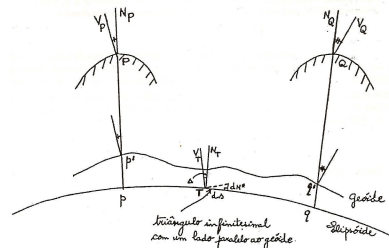 V_P N_P
N_Q V_Q
P
Q
V_T N_T
P'
Δ
dN*
T
dS
q'
geóide
p
q
Elipsóide
triângulo infinitesimal
com um lado paralelo ao geóide.